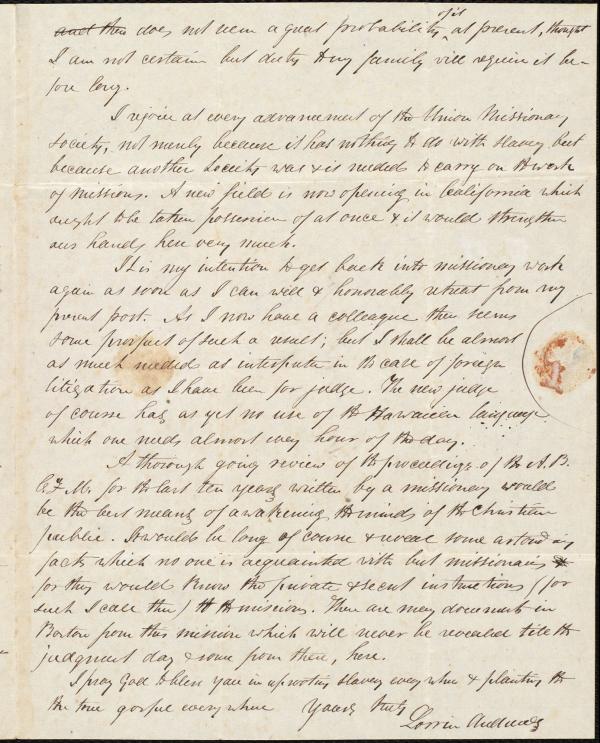 and then does not seem a great probability of it at present, though
I am not certain but duty to my family will require it be-
fore long.
I rejoice at every advancement of the Union Missionary
Society, not merely because it has nothing to do with slavery but
because another Society was & is needed to carry on the work
of missions. A new field is now opening in California which
ought to be taken possession of at once & it would strengthen
our hands here very much.
It is my intention to get back into missionary work
again as soon as I can well & honorably retreat from my
present post. As I now have a colleague there seems
some prospect of such a result; but I shall be almost
as much needed as interpreter in the case of foreign
litigation as I have been for judge. The new judge
of course has as yet no use of the Hawaiian language
which one needs almost every hour of the day.
A thorough going review of the proceedings of the A.B.
C.F.M. for the last ten years written by a missionary would
be the best means of awakening the minds of the Christian
public. It would be long of course & reveal some astounding
facts which no one is acquainted with but missionaries
for they would know the private & secret instructions (for
such I call them) to the missions. There are many documents in
Boston from this mission which will never be revealed till the
judgment day & some from there, here.
I pray God to bless you in uprooting slavery everywhere & planting the
the true gospel everywhere Yours truly
Lorrin Andrews